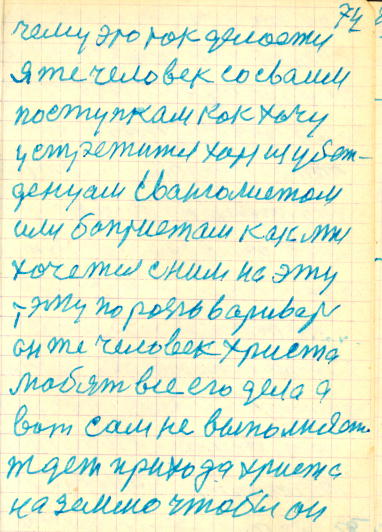 74
чему это ток делоети
я те человек сосваим
поступкам кок хочу
устретится хоч и убеж-
денуам Еванголистом
или баптистам как мти
хочется сним на эту
тэму поразьваривар
он те человек христа
любят все его дела а
вот сам не выполняет
ждет прихода христа
на землю чтобы он